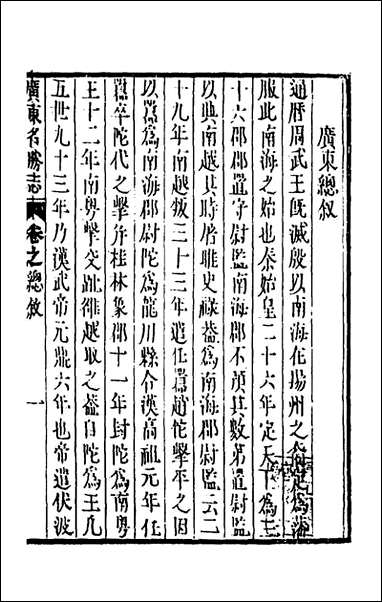 廣東總叙
通曆周武王旣滅殷以南海在揚州之定爲藩
服此南海之始也秦始皇二十六年定天下爲三
十六郡郡置守尉監南海郡不預其數第置尉監
以典南越其時俗唯史祿葢爲南海郡尉監云二
十九年南越叛三十三年遣任囂趙佗擊平之因
以囂爲南海郡尉陀爲龍川縣令漢高祖元年任
囂卒陀代之擊并桂林象郡十一年封陀爲南粤
王十二年南粤擊交趾雒越取之葢自陀爲王凡
五世九十三年乃漢武帝元鼎六年也帝遣伏波
廣東名勝志 卷之總叙 一